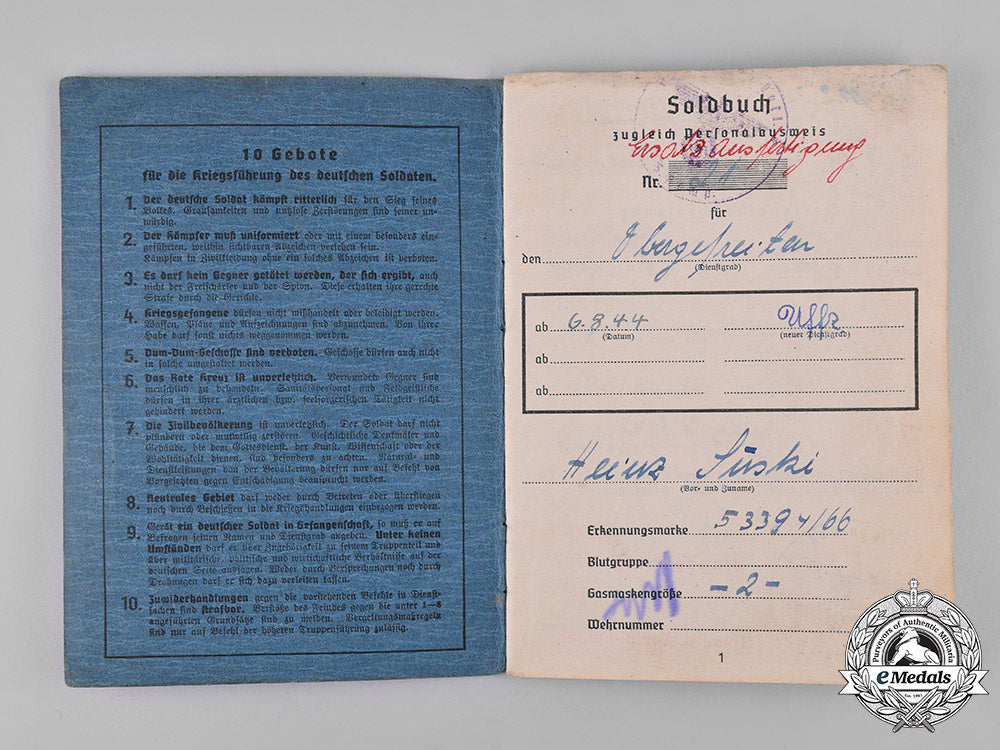 10 Gebote
für die Kriegsführung des deutschen Soldaten.
1. Der deutsche Soldat kämpft ritterlich für den Sieg seines
Volkes. Grausamkeiten und nutzlose Zerstörungen sind seiner un-
würdig.
2. Der Kämpfer muß uniformiert oder mit einem besonders ein-
geführten, weithin sichtbaren Abzeichen versehen sein.
Kämpfen in Zivilkleidung ohne ein solches Abzeichen ist verboten.
3. Es darf kein Gegner getötet werden, der sich ergibt, auch
nicht der Freischärler und der Spion. Diese erhalten ihre gerechte
Strafe durch die Gerichte.
4. Kriegsgefangene dürfen nicht mißhandelt oder beleidigt werden.
Waffen, Pläne und Aufzeichnungen sind abzunehmen. Von ihrer
Habe darf sonst nichts weggenommen werden.
5. Dum-Dum-Geschosse sind verboten. Geschosse dürfen auch nicht
in solche umgestaltet werden.
6. Das Rote Kreuz ist unverletzlich. Verwundete Gegner sind
menschlich zu behandeln. Sanitätspersonal und Feldgeistliche
dürfen in ihrer ärztlichen bzw. seelsorgerischen Tätigkeit nicht
gehindert werden.
7. Die Zivilbevölkerung ist unverletzlich. Der Soldat darf nicht
plündern oder mutwillig zerstören. Geschichtliche Denkmäler und
Gebäude, die dem Gottesdienst, der Kunst, Wissenschaft oder der
Wohltätigkeit dienen, sind besonders zu achten. Natural- und
Dienstleistungen von der Bevölkerung dürfen nur auf Befehl von
Vorgesetzten gegen Entschädigung beansprucht werden.
8. Neutrales Gebiet darf weder durch Betreten oder Überfliegen
noch durch Beschießen in die Kriegshandlungen einbezogen werden.
9. Gerät ein deutscher Soldat in Gefangenschaft, so muß er auf
Befragen seinen Namen und Dienstgrad angeben. Unter keinen
Umständen darf er über Zugehörigkeit zu seinem Truppenteil und
über militärische, politische und wirtschaftliche Verhältnisse auf der
deutschen Seite aussagen. Weder durch Versprechungen noch durch
Drohungen darf er sich dazu verleiten lassen.
10. Zuwiderhandlungen gegen die vorstehenden Befehle in Dienst-
sachen sind strafbar. Verstöße des Feindes gegen die unter 1—8
angeführten Grundsätze sind zu melden. Vergeltungsmaßregeln
sind nur auf Befehl der höheren Truppenführung zulässig.
Soldbuch
zugleich Personalausweis
Ersatzausfertigung
Nr.
für
den Obergefreiten
(Dienstgrad)
ab 6.8.44 Uffz
(Datum) (neuer Dienstgrad)
ab
ab
Heinz Süski
(Vor- und Zuname)
Erkennungsmarke 53394/66
Blutgruppe
Gasmaskengröße -2-
Wehrnummer
1
Purveyors of Authentic Militaria
eMedals